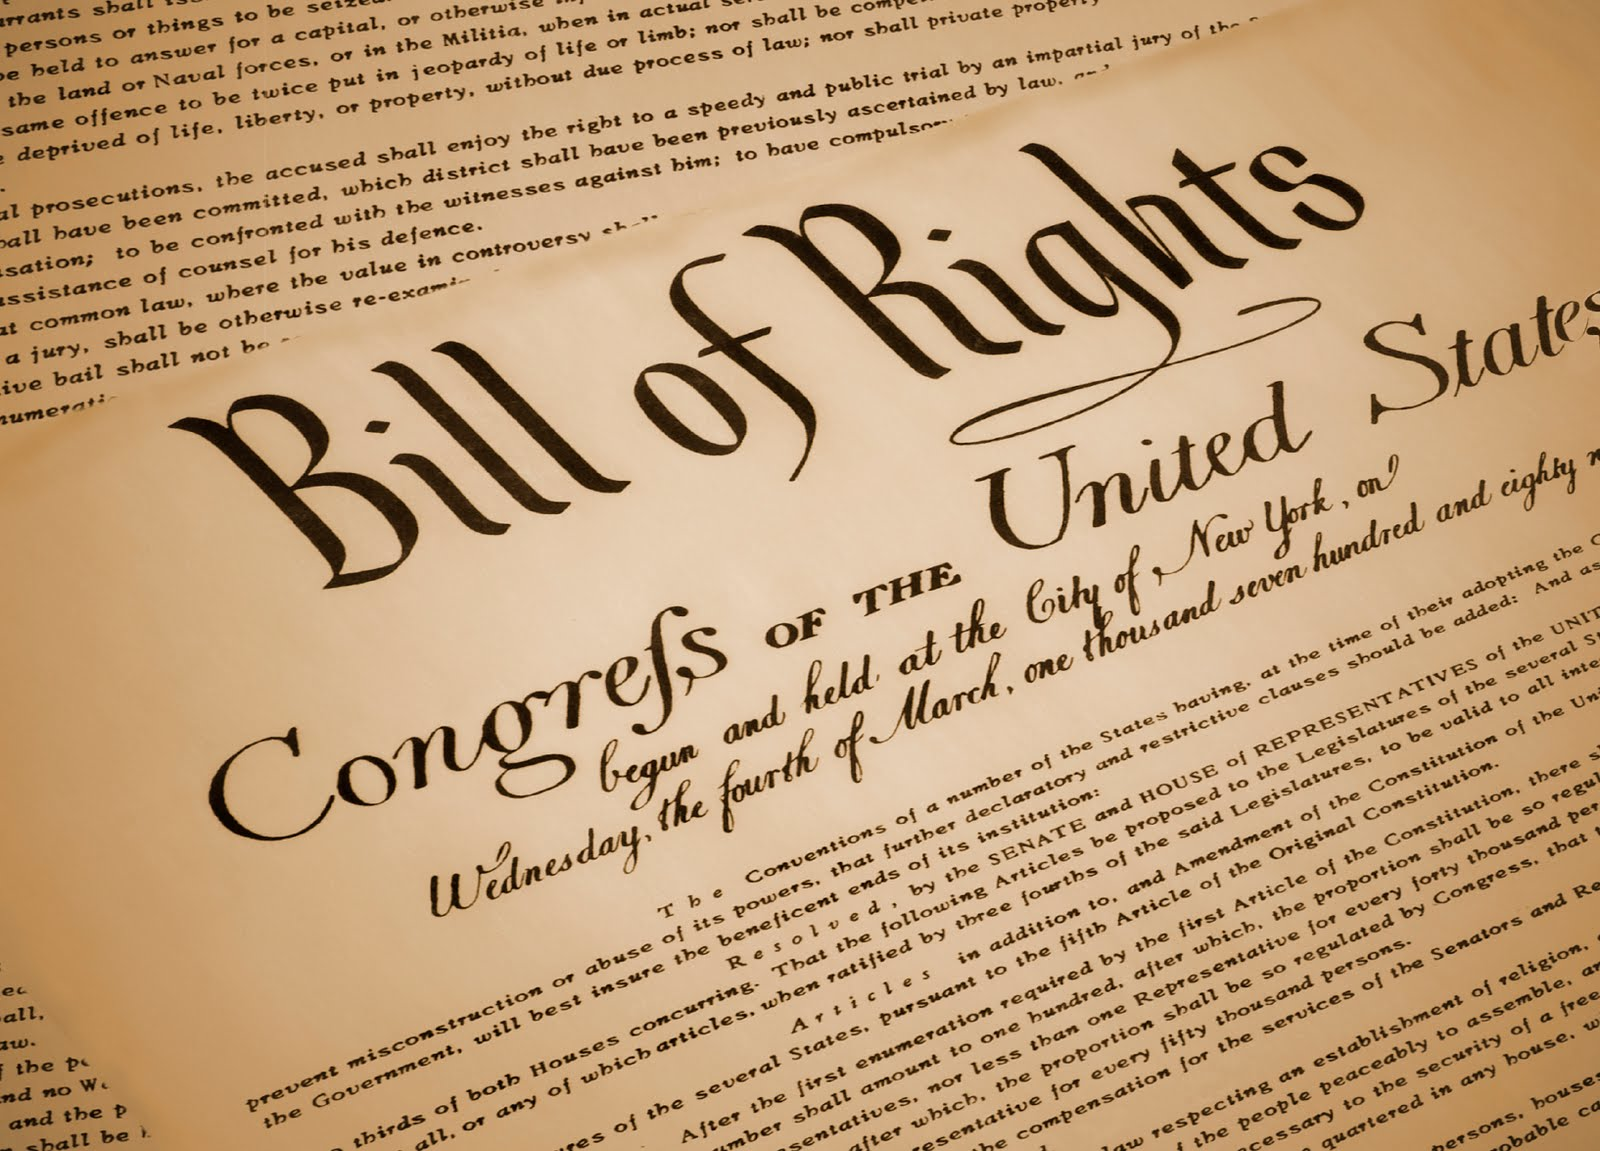 persons or things to be seized.
be held to answer for a capital, or otherwise
the land or Naval forces, or in the Militia, when in actual
same offence to be twice put in jeopardy of life or limb; nor shall be
deprived of life, liberty, or property, without due process of law; nor shall private property
prosecutions, the accused shall enjoy the right to a speedy and public trial by an impartial jury of the
have been committed, which district shall have been previously ascertained by law, and
to be confronted with the witnesses against him; to have
assistance of counsel for his defence.
common law, where the value in controversy
a jury, shall be otherwise
bail shall not be
Bill of Rights
Congreſs OF THE United States
begun and held at the City of New York, on
Wednesday, the fourth of March, one thousand seven hundred and eighty
The Conventions of a number of the States having, at the time of their adopting the
prevent misconstruction or abuse of its powers, that further declaratory and restrictive clauses should be added: And
the Government, will best insure the beneficent ends of its institution:
Resolved, by the SENATE and HOUSE of REPRESENTATIVES of the
thirds of both Houses concurring. That the following Articles be proposed to the Legislatures of the several
all, or any of which articles, when ratified by three fourths of the said Legislatures, to be valid to all
Articles in addition to, and Amendment of the Constitution of the
of the several States, pursuant to the fifth Article of the Original Constitution.
After the first enumeration required by the first Article of the Constitution, there
shall amount to one hundred, after which, the proportion shall be so
nor less than one Representative for every forty thousand
after which, the proportion shall be so regulated by Congress, that
for every fifty thousand persons.
the compensation for the services of the Senators and
law respecting an establishment of religion,
of the people peaceably to assemble,
to the security of a free
quartered in any house,
persons,
of the
and no
and the
shall be